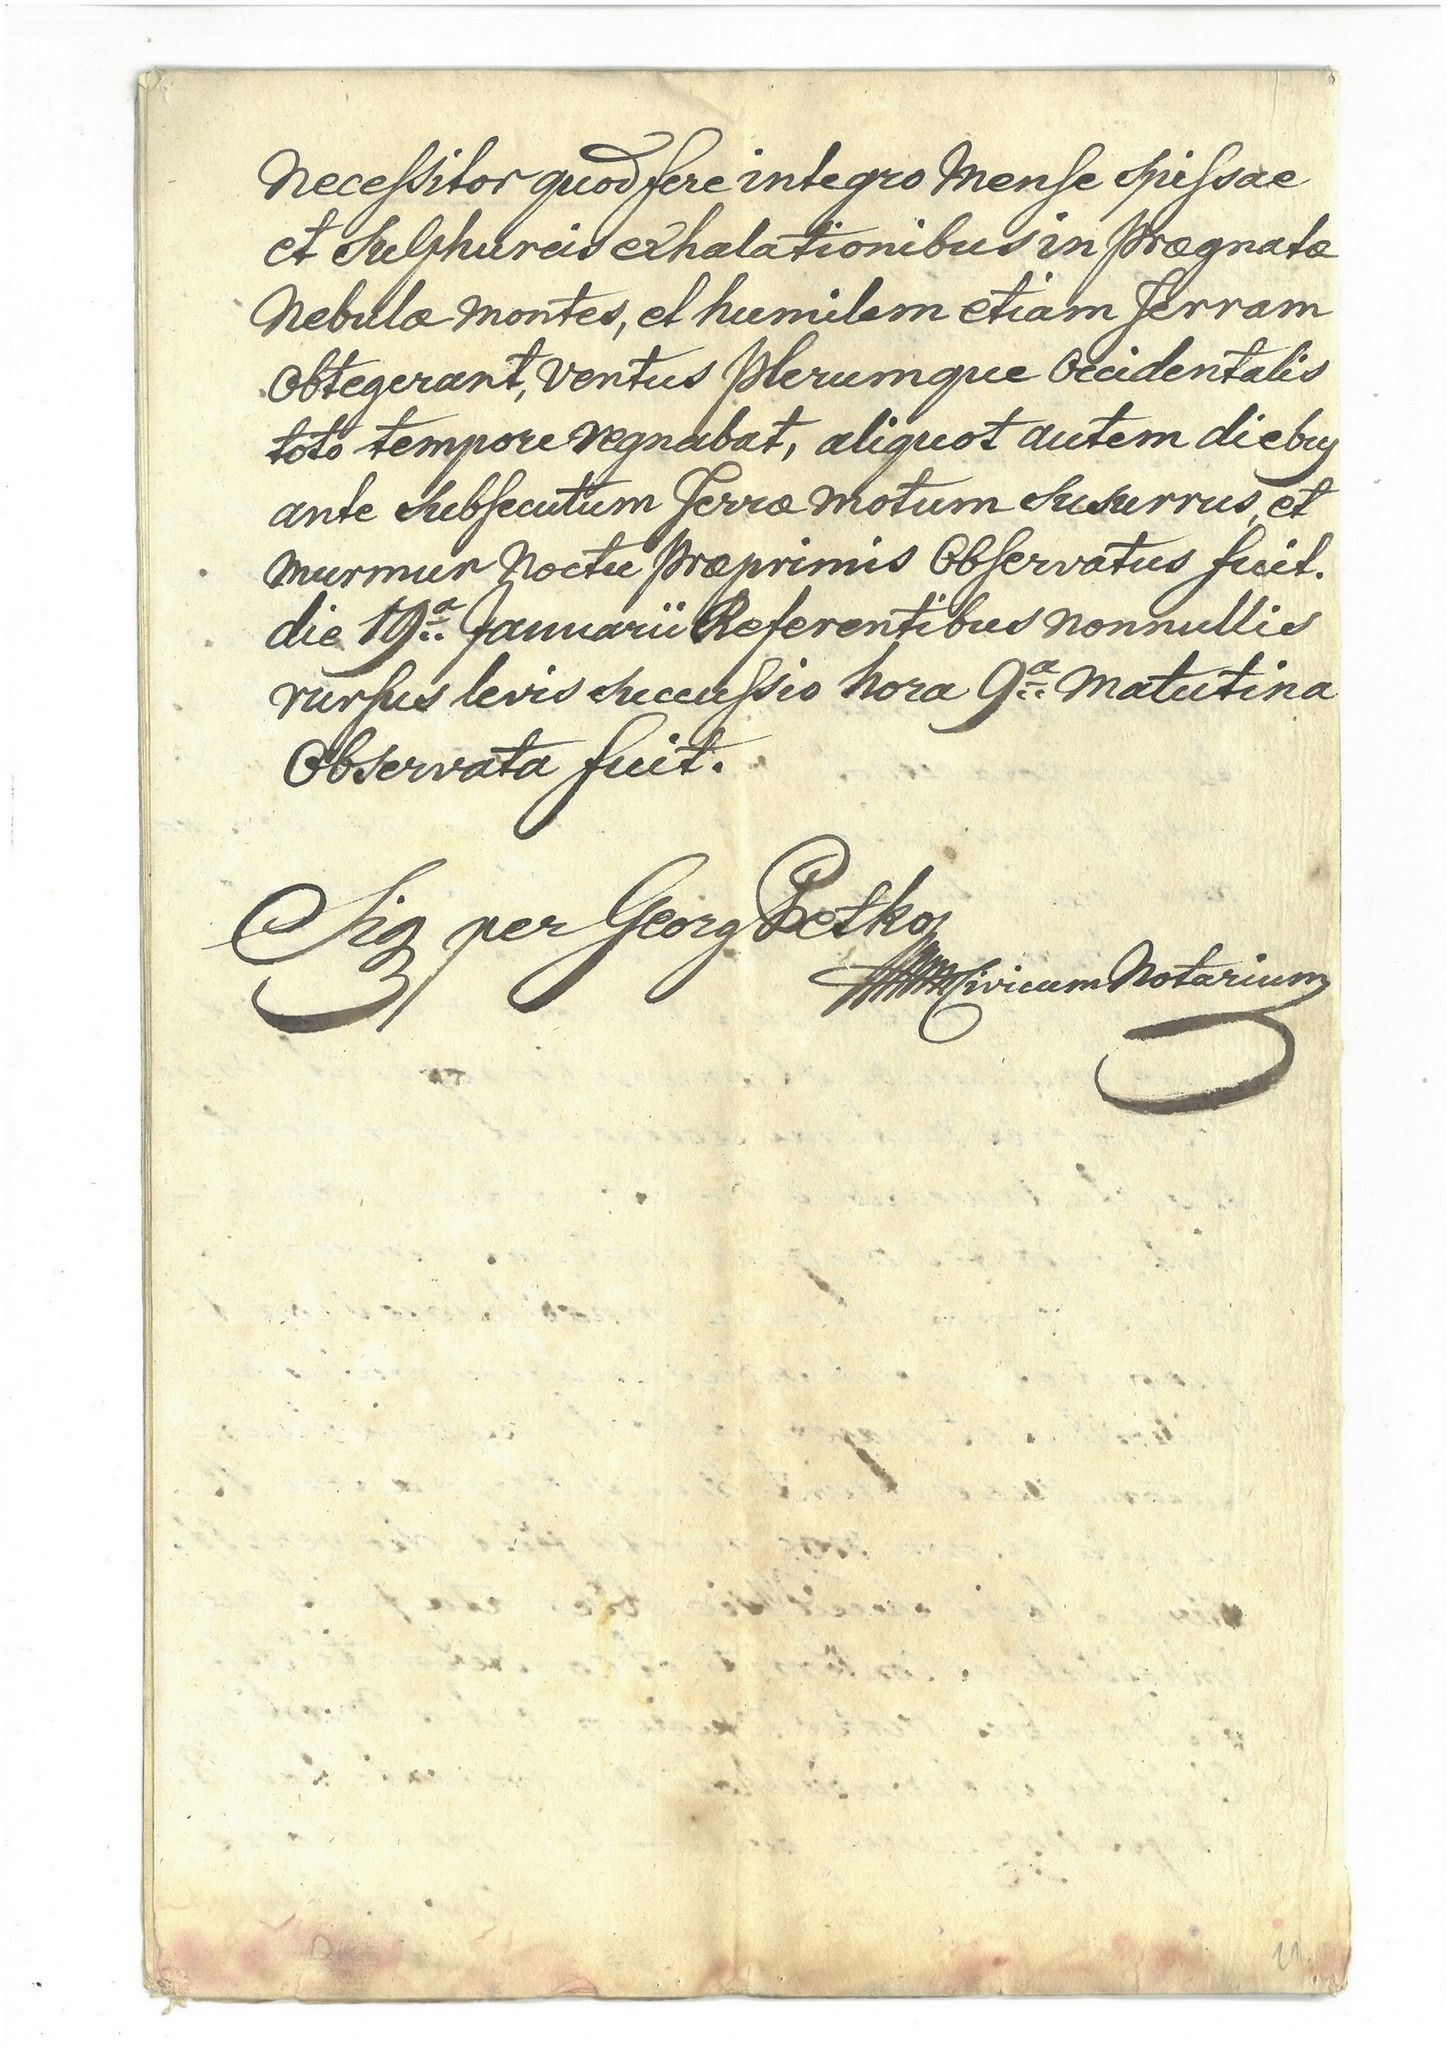 Necessitor quod fere integro Mense Spissae
et Sulphureis exhalationibus in prægnatæ
Nebulæ Montes, et humilem etiam Terram
Obtegerant, Ventus Plerumque Occidentalis
toto tempore regnabat, aliquot autem diebus
ante Subsecutum Terræ Motum Susurrus, et
Murmur Noctu Præprimis Observatus fuit.
die 19a Januarii Referentibus nonnullis
rursus levis Succussio hora 9a Matutina
Observata fuit.
Sig per Georg Petko
Civicum Notarium
11